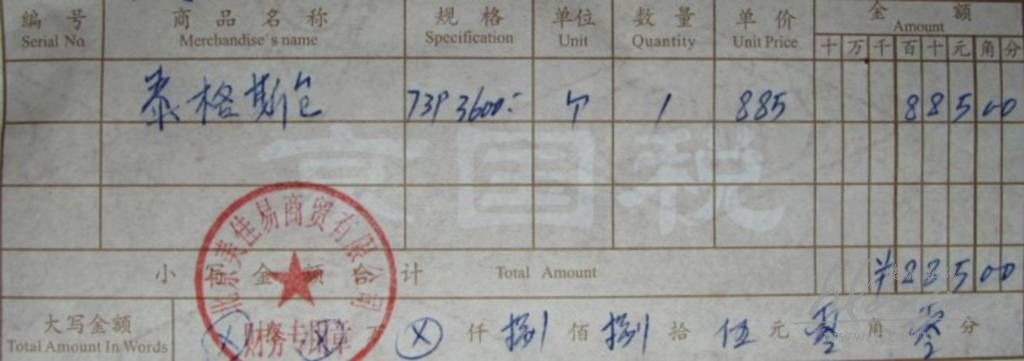 编号 商品名称 规格 单位 数量 单价 金额
Serial No. Merchandise's name Specification Unit Quantity Unit Price Amount
十万千百十元角分
泰格斯包 73P3600:- 个 1 885 88500
京国税
小写金额合计 Total Amount ¥88500
北京美佳易商贸有限公司
财务专用章
大写金额 ⓧ 拾 ⓧ 万 ⓧ 仟 捌 佰 捌 拾 伍 元 零 角 零 分
Total Amount In Words